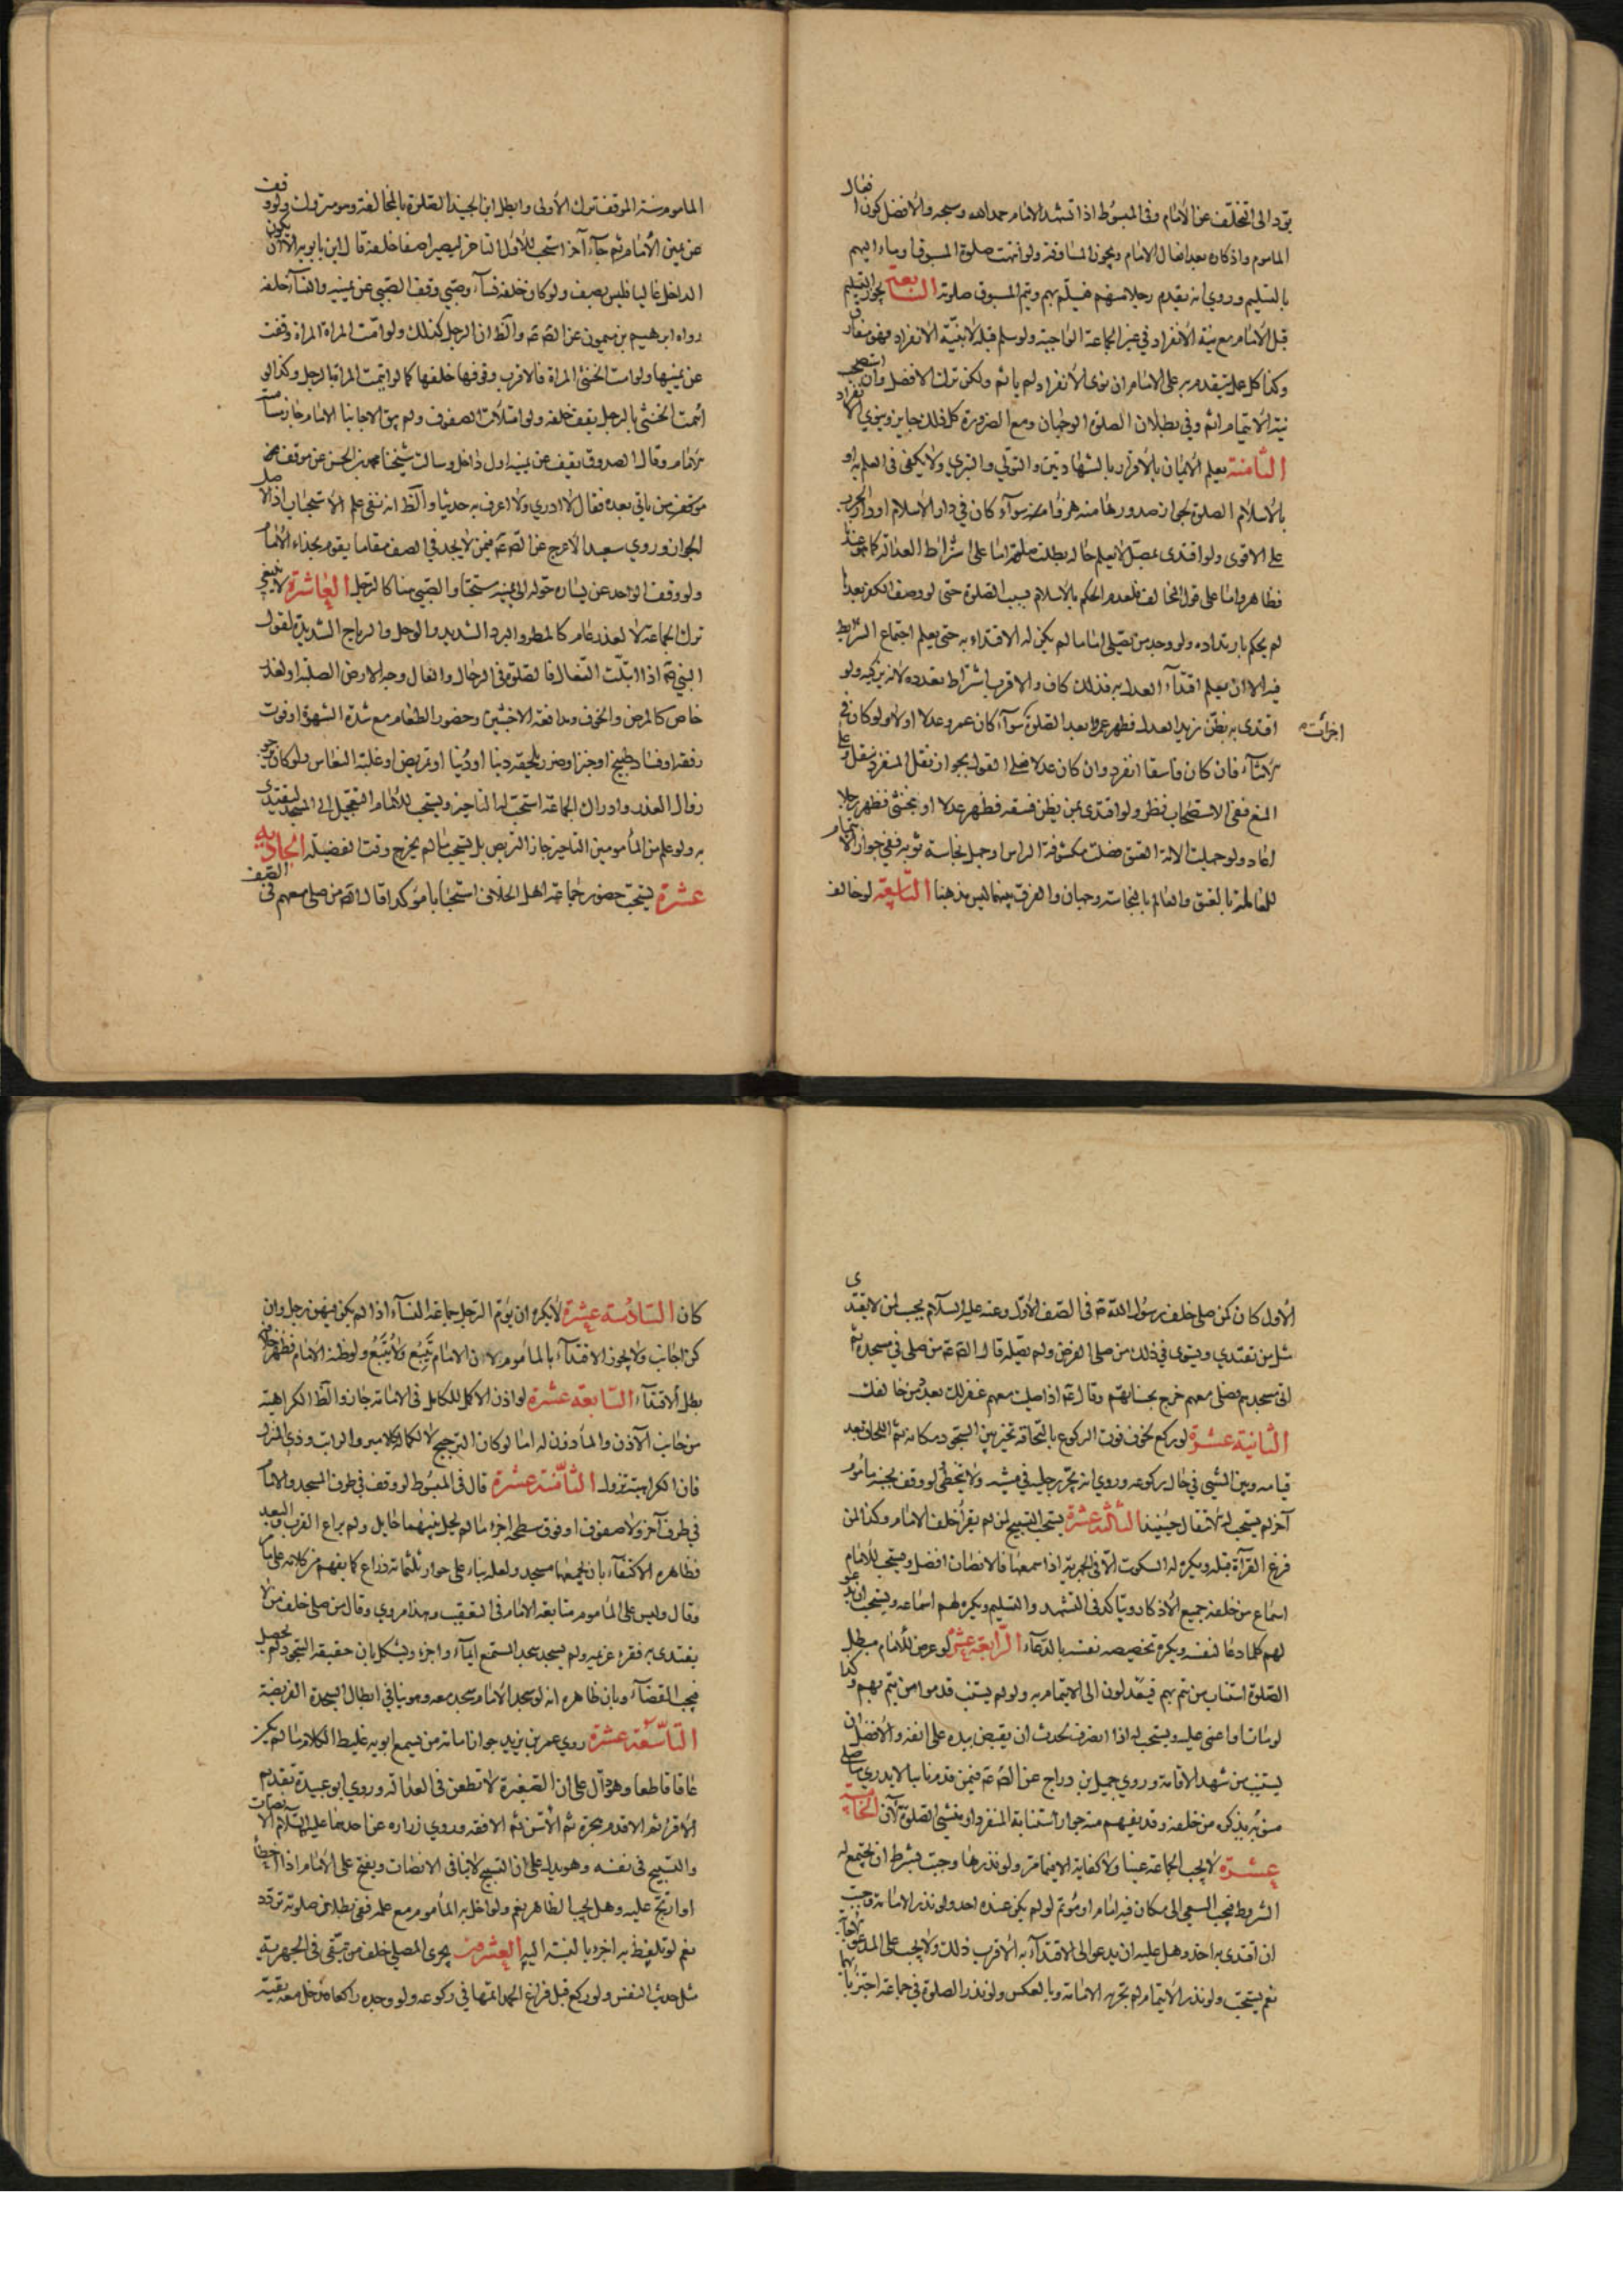 يؤد الى التخلف عن الامام وفي المبسوط اذا تشهد الامام حمد الله وسبحه والافضل كون افعال
الماموم واذكاره بعد افعال الامام ويجوز المساوقة ولو انتهت صلوة المسبوق اوماء اليهم
بالتسليم وروي انه يقدم رجلا منهم فيسلم بهم ويتم المسبوق صلوته السابعة يجوز التسليم
قبل الامام مع نية الانفراد في غير الجماعة الواجبة ولو سلم قبله لا بنية الانفراد فهو مفارق
وكذا كل على الامام ان نوى الانفراد لم ياثم ولكن ترك الافضل وان استصحب
نية الايتمام اثم وفي بطلان الصلوة الوجهان ومع الضرورة كل ذلك جايز وينوي الانفراد
الثامنة يعلم الايمان بالاقرار بالشهادتين والتولي والتبري ولا يكفي في العلم به او
بالاسلام الصلوة لجوان صدورها منه هزوا منه سواء كان في دار الاسلام او دار الحرب
على الاقوى ولو اقتدى بمصل لا يعلم حاله بطلت صلوته اما على اشتراط العدالة كما هو عندنا
فظاهر واما على قول المخالف فلعدم الحكم بالاسلام بسبب الصلوة حتى لو وصف الكفر بعدها
لم يحكم بارتداده ولو وجد من يصلي اماما لم يكن له الاقتداء به حتى يعلم اجتماع الشرايط
فيه الا ان يعلم اقتداء العدل به فذلك كاف والاقرب اشتراط تعدده لانه يزكيه ولو
اقتدى به بظن زيد العدل فظهر عمروا بعد الصلوة سواء كان عمرو عدلا او لا ولو كان في
اجزأت
الاثناء فان كان فاسقا انفرد وان كان عدلا فعلى القول بجواز نقل المنفرد ينقل وعلى
المنع ففي الاستصحاب نظر ولو اقتدى بمن يظن فسقه فظهر عدلا او بخنثى فظهر رجلا
اعاد ولو حملت الامة العتق فصلت مكشوفة الراس او حمل نجاسة ثوبه ففي جواز الايتمام
للعالمة بالعتق والعالم بالنجاسة وجهان والفرق بينهما ليس مذهبنا التاسعة لو خالف
الماموم سنة الموقف ترك الاولى وابطل ابن الجنيد الصلوة بالمخالفة وهو متروك ولو وقف
عن يمين الامام ثم جاء آخر استحب للاول التاخر ليصيرا صفا خلفه قال ابن بابويه الا ان يكون
الداخل غاليا فليس بصف ولو كان خلفه نساء وصبي وقف الصبي عن يمينه والنساء خلفه
رواه ابرهيم بن ميمون عن الص ع والظ ان الرجل كذلك ولو امت المراة المراة وقفت
عن يمينها ولو امت الخنثى المراة فالاقرب وقوفها خلفها كما لو ايتمت المراة بالرجل وكذا لو
ائتمت الخنثى بالرجل يقف خلفه ولو امتلات الصفوف ولم يبق الا جانبا الامام جاز مسامته
الامام وقال الصدوق يقف عن يمينه اول داخل وسالت شيخنا محمد بن الحسن عن موقف
موقف من ياتي بعده فقال لا ادري ولا اعرف به حديثا والظ انه نفي علم الاستحباب اذ الاصل
الجواز وروي سعيد الاعرج عن الص ع فيمن لا يجد في الصف مقاما يقوم بحذاء الامام
ولو وقف الواحد عن يساره حوله الى يمينه ستحبا والصبي هنا كالرجل العاشرة لا ينبغي
ترك الجماعة الا لعذر عام كالمطر والبرد الشديد والوحل والرياح الشديدة لقول
النبي ص اذا ابتلت النعال فالصلوة في الرحال والنعال وجه الارض الصلبة او لعذر
خاص كالمرض والخوف ومدافعة الاخبثين وحضور الطعام مع شدة الشهوة او فوت
رفقة او فساد طبيخ او خبز او ضرر يلحقه دينا او دنيا او تمريض او غلبة النعاس ولو كان يرجو
زوال العذر وادراك الجماعة استحب له التاخير ويستحب للامام التعجيل الى المسجد ليقتدى
به ولو علم من المأمومين التاخير جاز التربص بل يستحب ما لم يخرج وقت الفضيلة الحادية
عشرة يستحب حضور جماعة اهل الخلاف استحبابا مؤكدا قال الص من صلى معهم في الصف
الاول كان كمن صلى خلف رسول الله ص في الصف الاول وعنه عليه السلام يحسب لمن لا يقتدى
مثل من يقتدي ويستوى في ذلك من صلى الفرض ولم يصله قال الص ع من صلى في مسجده ثم
اتى مسجدهم فصلى معهم خرج بحسناتهم وقال ع اذا صليت معهم غفر لك بعدد من خالفك
الثانية عشرة لو ركع لخوف فوت الركوع بالتحاقه تخير بين السجود مكانه ثم اللحاق بعد
قيامه وبين المشي في حال ركوعه وروي انه يجر رجليه في مشيه ولا يتخطى لو وقف بجنبه ماموم
آخر لم يستحب له الانتقال حينئذ الثالثة عشرة يستحب التسبيح لمن لم يقرأ خلف الامام وكذا لمن
فرغ القرآة قبله ويكره له السكوت الا في الجهرية اذا سمعها فالانصات افضل ويستحب للامام
اسماع من خلفه جميع الاذكار ويتاكد في التشهد والتسليم ويكره لهم اسماعه ويستحب ان يدعو
لهم كلما دعا لنفسه ويكره تخصيصه نفسه بالدعاء الرابعة عشرة لو عرض للامام مبطل
الصلوة استناب من يتم بهم فيعدلون الى الايتمام به ولو لم يستنب قدموا من يتم بهم وكذا
لو مات او اغمي عليه ويستحب له اذا انصرف لحدث ان يقبض بيده على انفه والافضل ان
يستنيب من شهد الاقامة وروي جميل بن دراج عن الص ع فيمن قدم نائبا لا يدري ما صلى
من قبله يذكره من خلفه وقد يفهم منه جواز استنابة المنفرد او منشئ الصلوة الان الخامسة
عشرة لا يجب الجماعة عينا ولا كفاية الا فيما مر ولو نذرها وجبت بشرط ان يجتمع له
الشروط فيجب السعي الى مكان فيه امام او مؤتم لو لم يكن عنده احد ولو نذر الامامة وجبت
ان اقتدى به احد وهل عليه ان يدعو الى الاقتداء به الاقرب ذلك ولا يجب على المدعو الاجابة
نعم يستحب ولو نذر الايتمام لم يجزه الامامة وبالعكس ولو نذر الصلوة في جماعة اجتزأ بايهما
كان السادسة عشرة لا يكره ان يؤم الرجل جماعة النساء اذا لم يكن فيهن رجل وان
كن اجانب ولا يجوز الاقتداء بالمأموم لان الامام يتبع ولا يتبع ولو ظنه الامام فظهر خلافه
بطل الاقتداء السابعة عشرة لو اذن الاكمل للكامل في الامامة جاز والظ الكراهية
من جانب الآذن والمأذون له اما لو كان الترجيح لا لكماله كالامير والراتب وذي المنزل
فان الكراهية تزول الثامنة عشرة قال في المبسوط لو وقف في طرف المسجد والامام
في طرف آخر ولا صفوف او فوق سطحه اجزء ما لم يحل بينهما حايل ولم يراع القرب والبعد
فظاهره الاكتفاء بان يجمعهما مسجد ولعله بناء على جواز ثلثمائة ذراع كما يفهم من كلامه على ما
وقال وليس على الماموم متابعة الامام في التعقيب وبهذا مروي وقال من صلى خلف من لا
يقتدى به فقرء عزيمة ولم يسجد سجد المستمع ايماء واجزء ويشكل بان حقيقة السجود لم تحصل
فيجب القضاء وبان ظاهره انه لو سجد الامام سجد معه وهو ينافي ابطال السجدة الفريضة
التاسعة عشرة روي عمر بن يزيد جواز امامة من يسمع ابويه غليظ الكلام ما لم يكن
عاقا قاطعا وهو دال على ان الصغيرة لا تطعن في العدالة وروي ابو عبيدة تقديم
الاقرا ثم الاقدم هجرة ثم الاسن ثم الافقه وروي زراره عن احدهما عليهما السلام الانصات
والتسبيح في نفسه وهو يدل على ان التسبيح لا ينافي الانصات ويفتح على الامام اذا اخطأ
او ارتج عليه وهل يجب الظاهر نعم ولو اخل به المأموم مع علمه ففي بطلان صلوته تردد
نعم لو تلفظ به اجزء بالنسبة اليه العشرون يجزى المصلي خلف من يتقى في الجهرية
مثل حديث النفس ولو ركع قبل فراغ الحمد اتمها في ركوعه ولو وجده راكعا دخل معه تقية